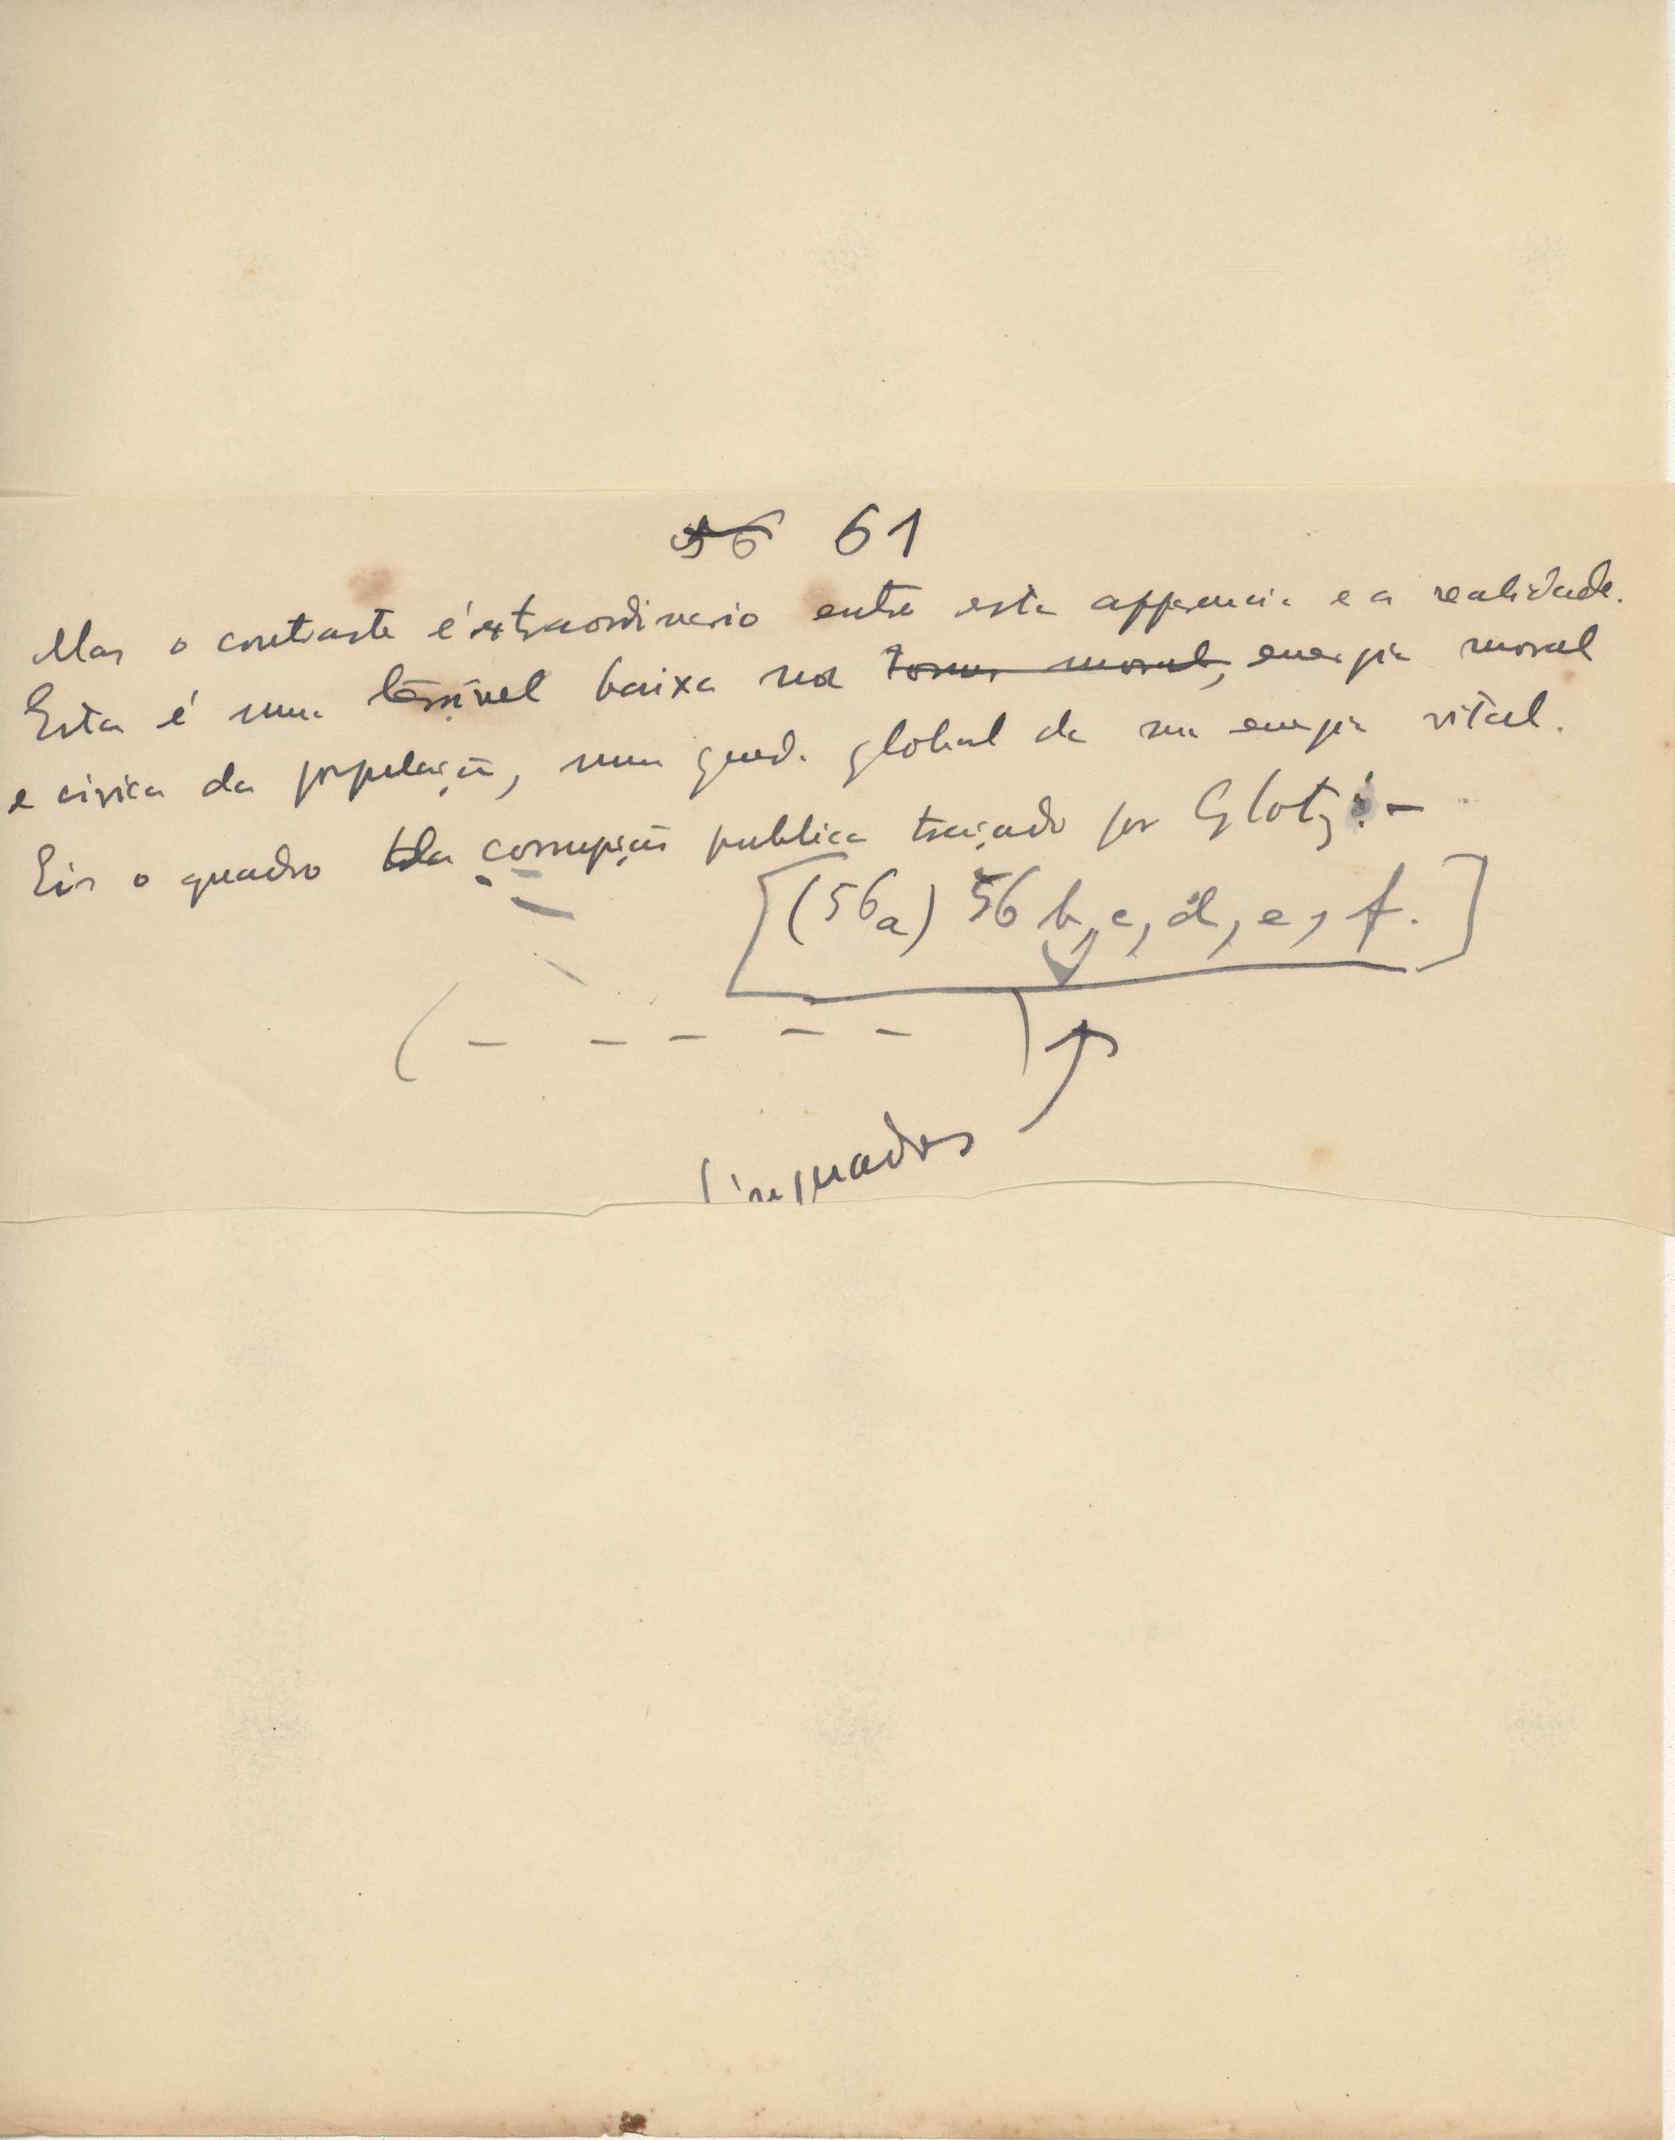 56 61
Mas o contraste é extraordinario entre esta apparencia e a realidade.
Esta é uma terrivel baixa na moral, energia moral
e civica da população, uma queda global da sua energia vital.
Eis o quadro da corrupção publica traçado por Glotz: -
[(56a) 56 b, c, d, e, f.]
( - - - - - )